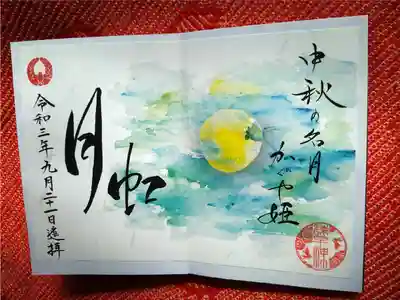 中秋の名月
かぐや姫
月虹
令和三年九月二十一日遥拝